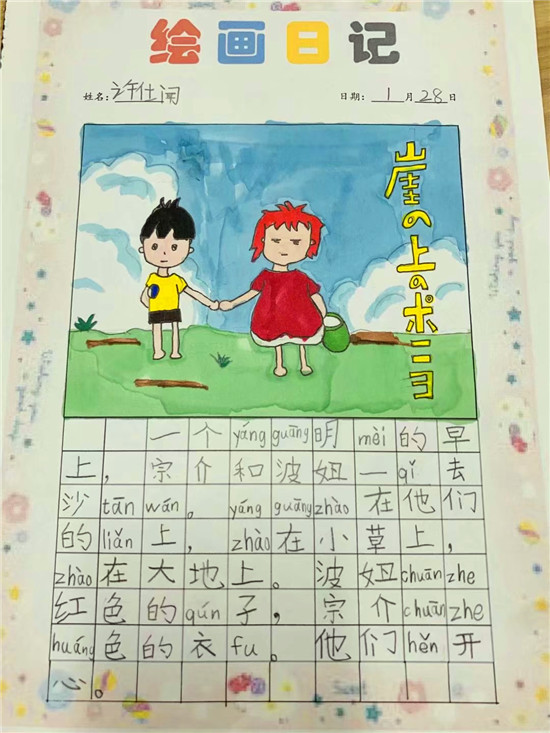 绘画日记
姓名: 许仕闻 日期: 1月28日
崖の上のポニョ
一个yáng guāng明mèi的早
上，宗介和波妞一qǐ去
沙tān wán。yáng guāng zhào在他们
的liǎn上，zhào在小草上，
zhào在大地上。波妞chuān zhe
红色的qún子，宗介chuān zhe
huáng色的衣fu。他们hěn开
心。